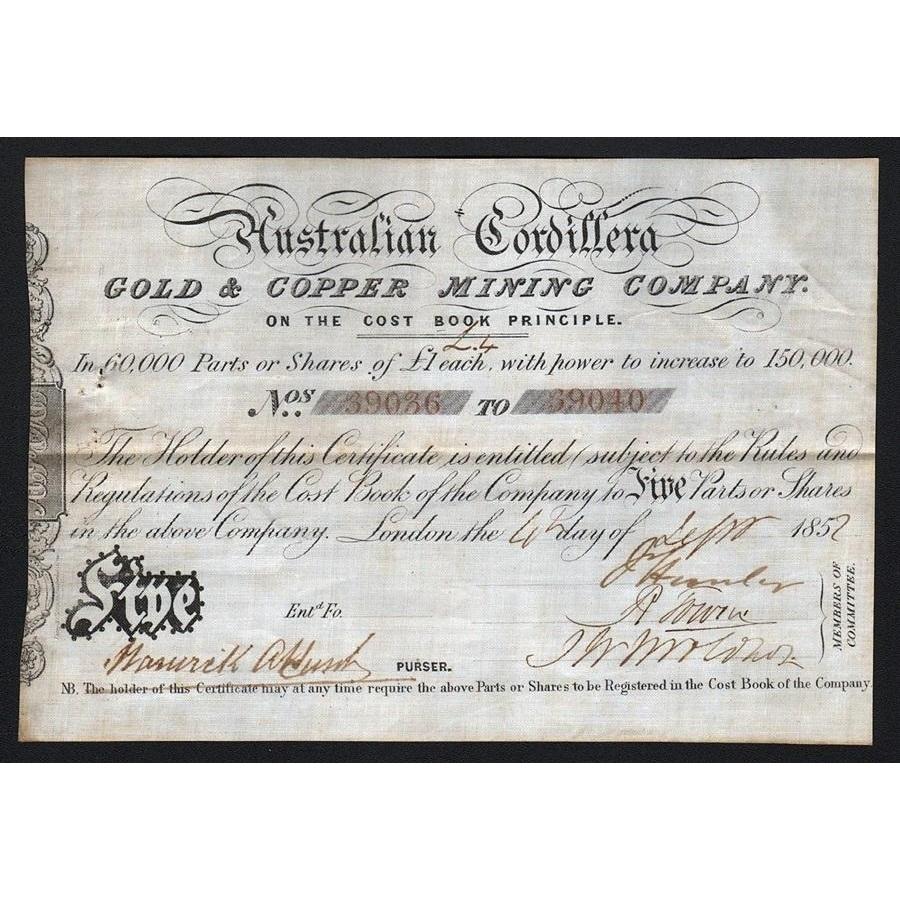 Australian Cordillera
GOLD & COPPER MINING COMPANY.
ON THE COST BOOK PRINCIPLE.
£4
In 60,000 Parts or Shares of £1 each, with power to increase to 150,000.
Nos. 39036 TO 39040
The Holder of this Certificate is entitled (subject to the Rules and
Regulations of the Cost Book of the Company to Five Parts or Shares
in the above Company. London the day of 1852
Five
Entd Fo.
MEMBERS OF
COMMITTEE.
PURSER.
NB. The holder of this Certificate may at any time require the above Parts or Shares to be Registered in the Cost Book of the Company